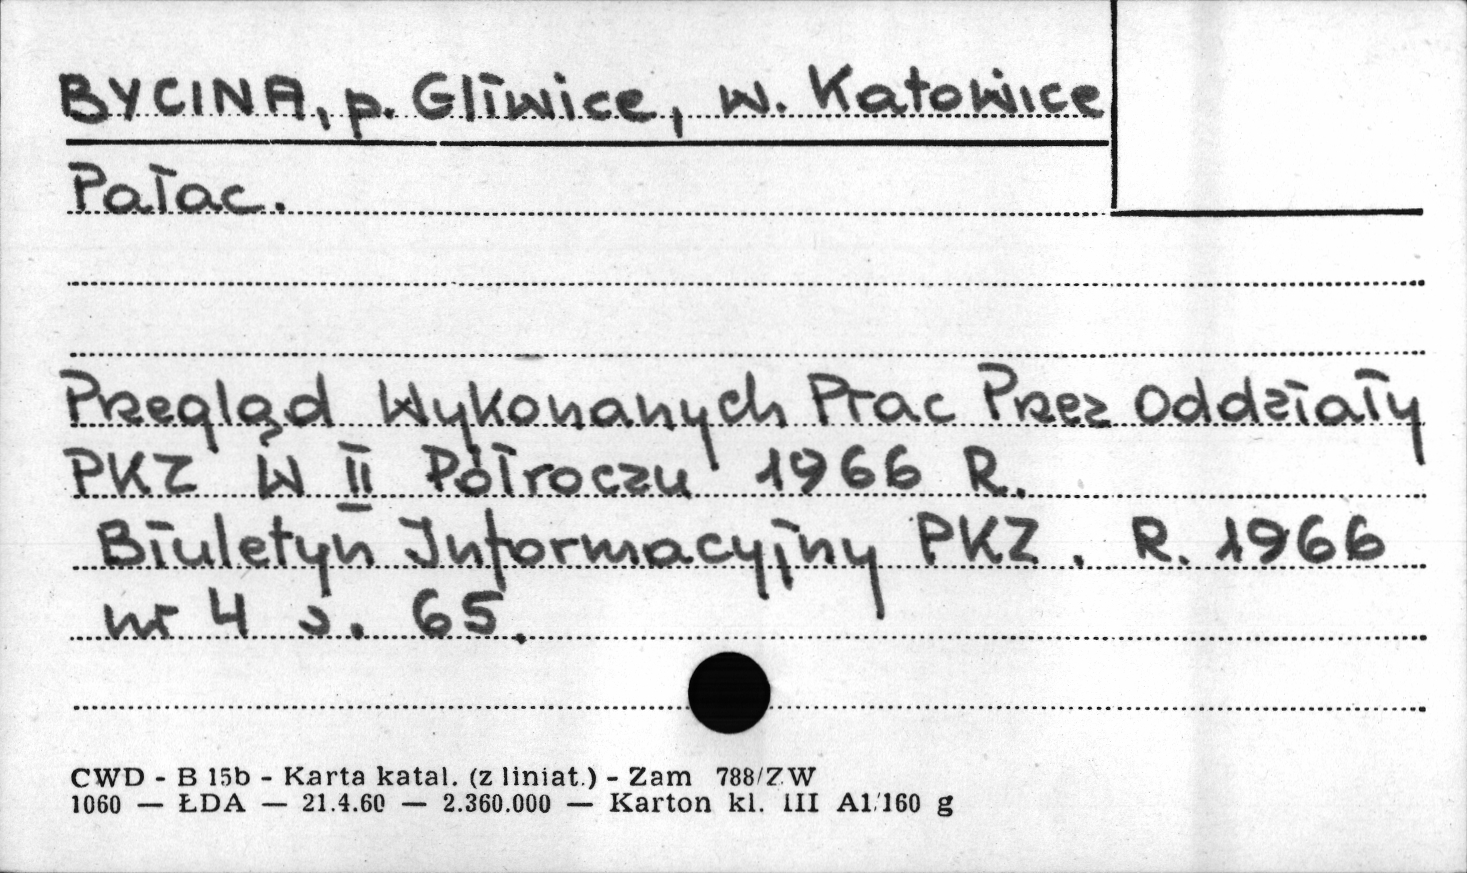 BYCINA, p. Gliwice, w. Katowice
Pałac.
Przegląd Wykonanych Prac Przez Oddziały
PKZ W II Półroczu 1966 R.
Biuletyn Informacyjny PKZ. R. 1966
nr 4 s. 65.
CWD - B 15b - Karta katal. (z liniat.) - Zam 788/ZW
1060 — ŁDA — 21.4.60 — 2.360.000 — Karton kl. III A1/160 g